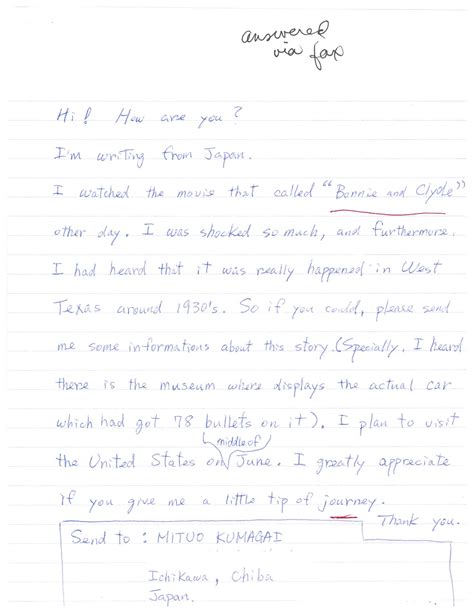 answered
via fax
Hi! How are you?
I'm writing from Japan.
I watched the movie that called "Bonnie and Clyde"
other day. I was shocked so much, and furthermore.
I had heard that it was really happened in West
Texas around 1930's. So if you could, please send
me some informations about this story. (Specially. I heard
there is the museum where displays the actual car
which had got 78 bullets on it). I plan to visit
middle of
the United States on June. I greatly appreciate
if you give me a little tip of journey.
Thank you.
Send to : MITUO KUMAGAI
Ichikawa, Chiba
Japan.